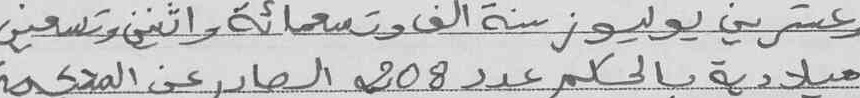 وعشرين يوليوز سنة ألف وتسعمائة واثنين وتسعين
ميلادية بالحكم عدد 208 الصادر عن المحكمة